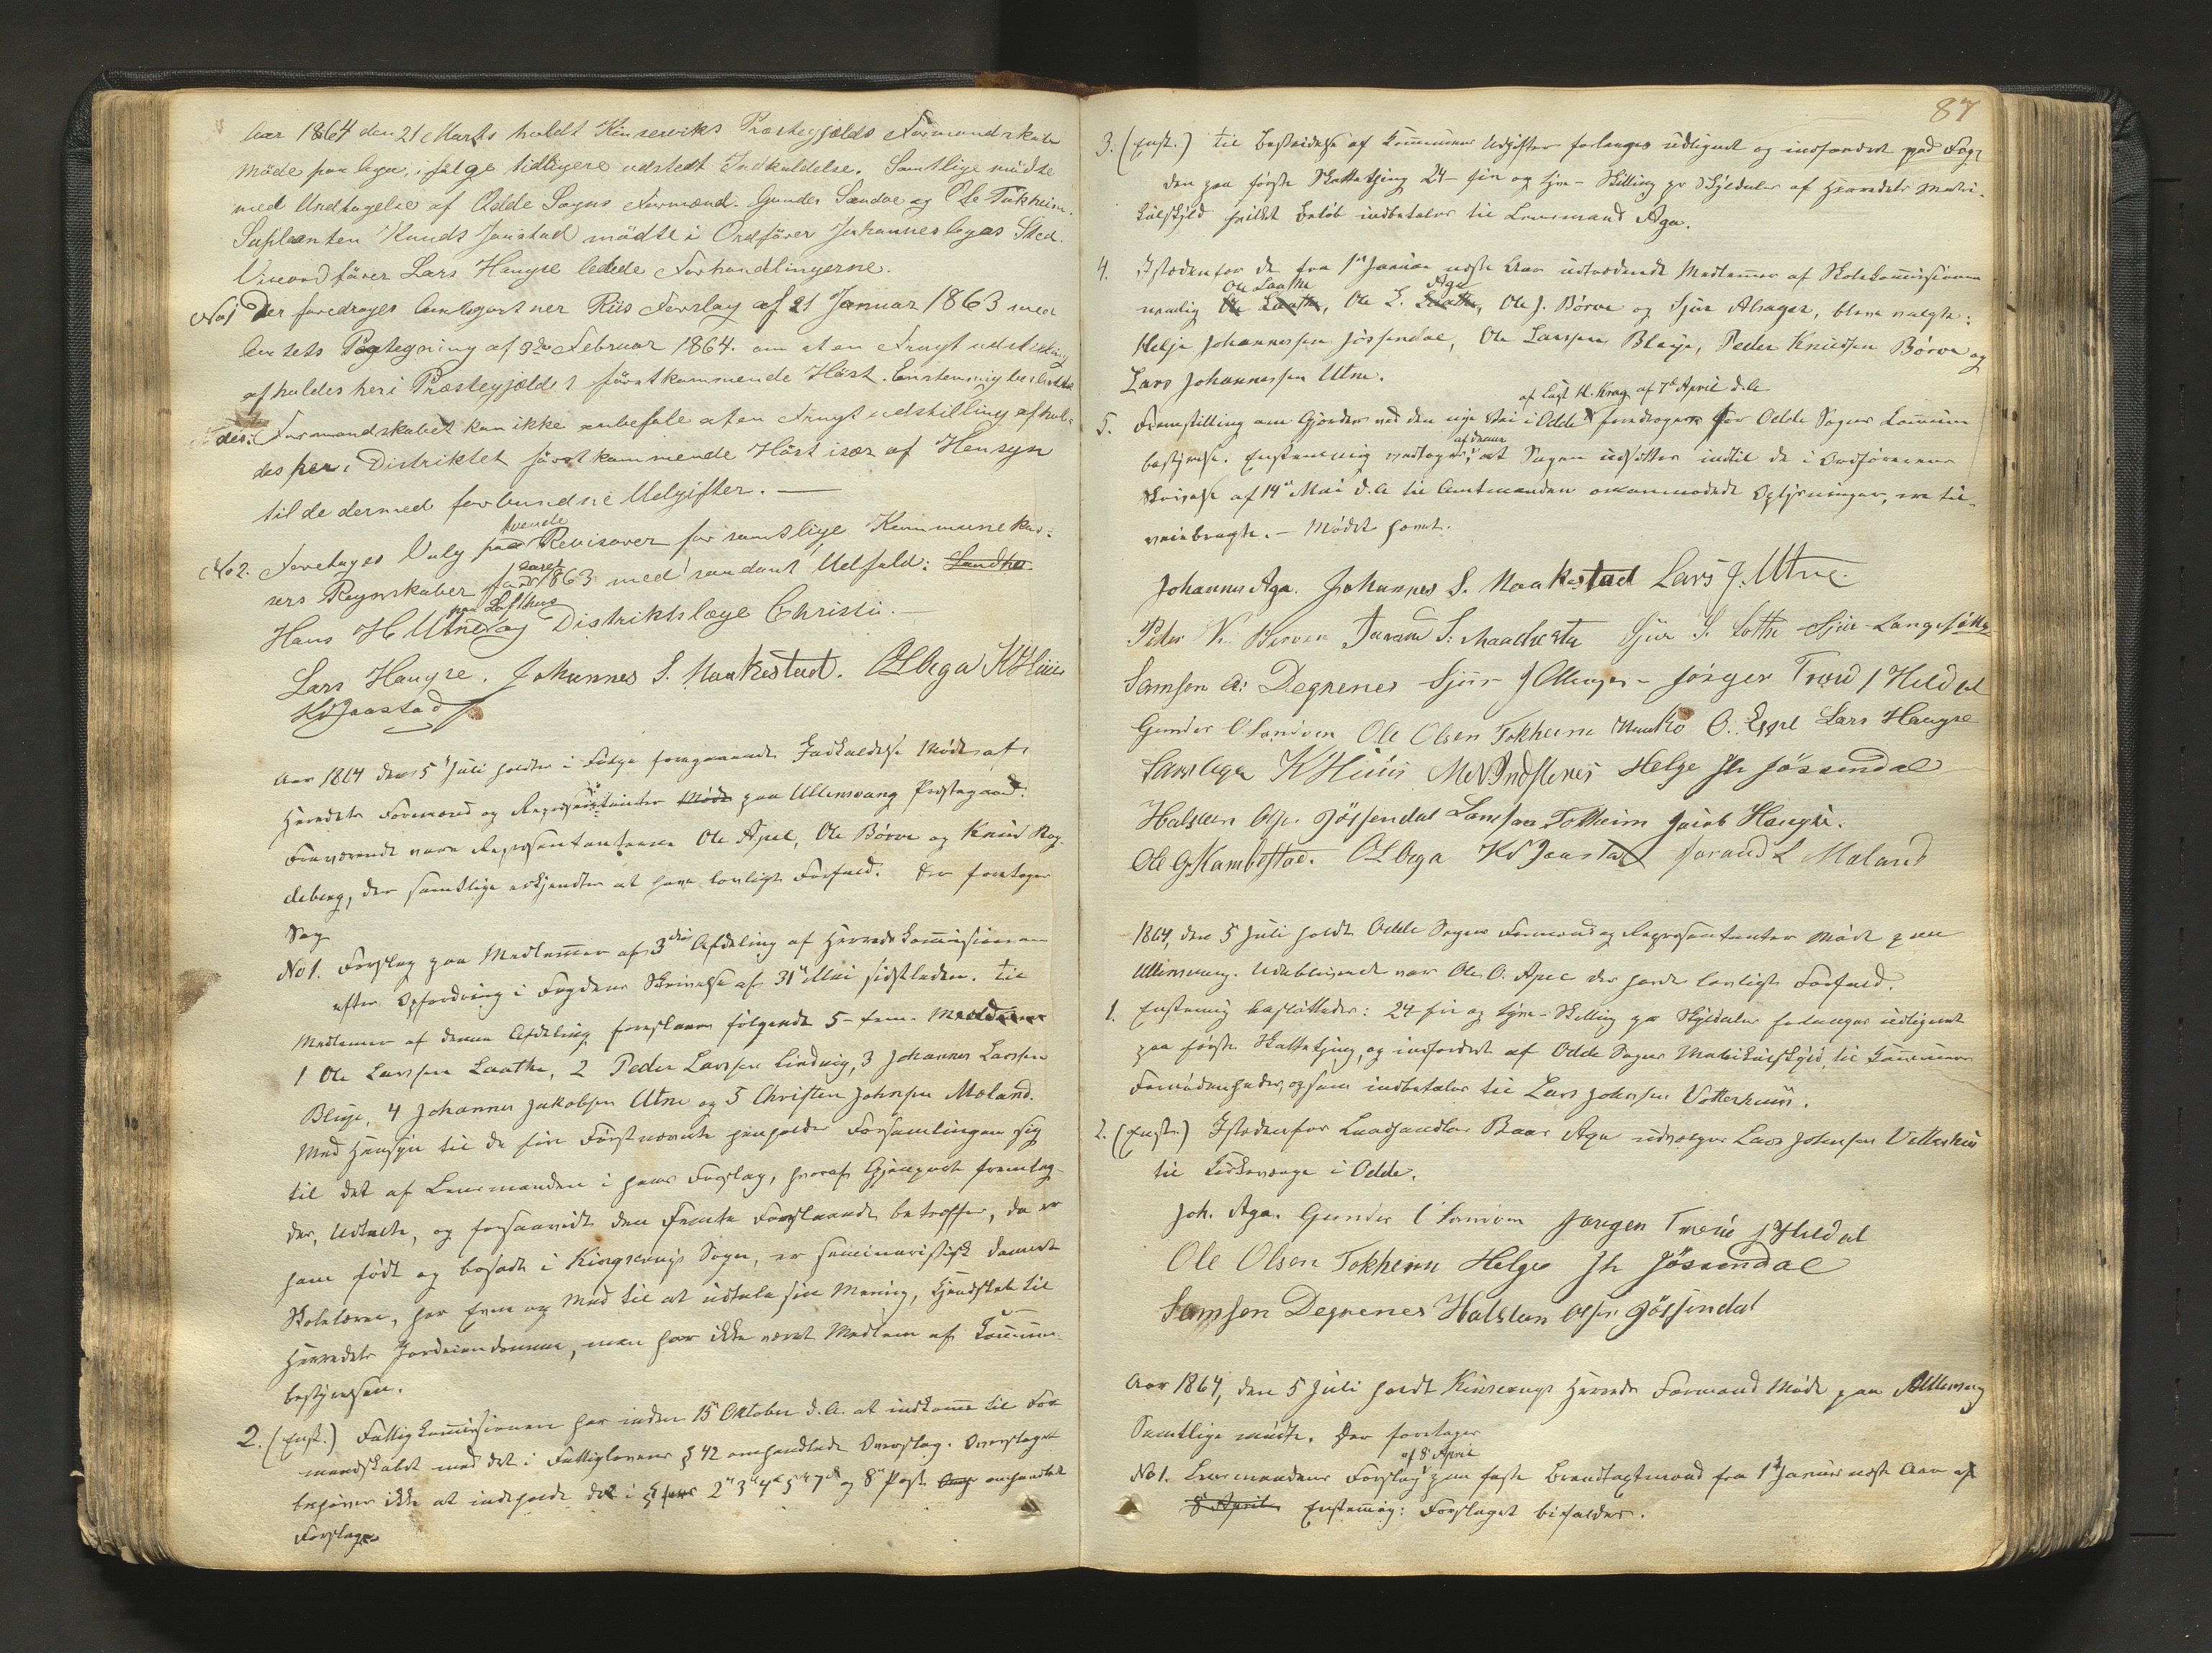 Aar 1864 den 21 Marts holdt Kinserviks Præstegjælds Formandskab
Møde paa Aga, i følge tidligere udstedt Indkaldelse. Samtlige mødte
med Undtagelse af Odde Sogns Formænd. Gunder Sandve og Ole Tokheim.
Supleanten Knud Jaastad mødte i Ordfører Johannes Agas Sted.
Viceordfører Lars Haugse ledede Forhandlingerne.
No 1 Der foredroges Amtsgartner Riis Forslag af 21 Januar 1863 med
Amtets Paategning af 9de Februar 1864. om at en Frugtudstilling
afholdes her i Præstegjældet førstkommende Høst. Eenstemmig besluttet
Formandskabet kan ikke anbefale at en Frugtudstilling afhol-
des her i Distriktet førstkommende Høst især af Hensyn
til de dermed forbundne Udgifter. —
No 2. Foretoges Valg paa tvende Revisorer for samtlige Kommunekas-
sers Regnskaber for Aaret 1863 med saadant Udfald:
Hans H Utne paa Lofthus og Distriktslæge Christie. —
Lars Haugse. Johannes S. Maakestad. O L Aga K Huus
K J Jaastad
Aar 1864 den 5 Juli holdtes i Følge foregaaende Indkaldelse Møde af
Herredets Formænd og Repræsentanter Møde paa Ullensvang Præstegaard.
Fraværende vare Repræsentanterne Ole Apel, Ole Børve og Knud Rog-
deberg, der samtlige erkjendtes at have lovligt Forfald. Der foretoges
Sag
No 1. Forslag paa Medlemmer af 3die Afdeling af Herredskommissionen
efter Opfordring i Fogdens Skrivelse af 31te Mai sidstleden. Til
Medlemmer af denne Afdeling foreslaaes følgende 5 - fem - Medlemmer
1 Ole Larssen Laathe, 2 Peder Larssen Lindvig, 3 Johannes Larssen
Bleije, 4 Johannes Jakobsen Utne og 5 Christen Johnsen Moland.
Med Hensyn til de fire Førstnævnte henholder Forsamlingen sig
til det af Lensmanden i hans Forslag, hvoraf Gjenpart fremlag-
des, Udtalte, og forsaavidt den Femte Foreslaaede betræffer, da er
han født og bosadt i Kingservigs Sogn, er seminaristisk dannet
Skolelærer, har Evne og Mod til at udtale sin Mening, Kjendskab til
Herredets Jordeiendomme, men har ikke været Medlem af Kommune-
bestyrelsen.
2. (Enst.) Fattigkommissionen har inden 15 Oktober d.A. at indkomme til For-
mandskabet med det i Fattiglovens § 42 omhandlede Overslag. Overslaget
behøver ikke at indeholde det i 2n 3d 4d 5te 7de og 8n Post omhandlet
Forslag
87
3. (Enst.) Til Bestridelse af Kommunens Udgifter forlanges udlignet og indfordret ved Fog-
den paa første Skattething 24 - fire og tyve - Skilling pr Skylddaler af Herredets Matri-
kulskyld hvilket Beløb indbetales til Lensmand Aga.
4. Istedenfor de fra 1te Januar næste Aar udtrædende Medlemmer af Skolekommissionen
nemlig Ole Laathe, Ole L. Aga, Ole J. Børve og Sjur Alsager, bleve valgte:
Helje Johannessen Jøssendal, Ole Larssen Bleije, Peder Knudsen Børve og
Lars Johannessen Utne.
5. Fremstilling om Gjærder ved den nye Vei i Odde af Lagt. H. Krag af 7de April d.A. foredroges for Odde Sogns Kommune
bestyrelse. Enstemmig vedtoges af denne, at Sagen udsættes indtil de i Ordførerens
Skrivelse af 14de Mai d.A til Amtmanden omanmodede Oplysninger, ere til-
veiebragte. — Mødet hævet.
Johannes Aga. Johannes S. Maakestad Lars J. Utne.
Peder K. Børven Torrand S. Maachestu Sjur S. Lothe Sjur Langesæter
Samson A: Degrenes Sjur J Alsager Jørgen Trond J Hildal
Gunder O Sandven Ole Olsen Tokheim Maako O. Espel Lars Haugse
Lars Aga K Huus M V Indstenes Helge Jh Jøssendal
Halsten Olsen Jøssendal Samson Tokheim Jacob Haugse.
Ole G. Kambestad. O L Aga K J Jaastad Torrand L Maland
1864, den 5 Juli holdt Odde Sogns Formænd og Repræsentanter Møde paa
Ullensvang. Udeblivende var Ole O. Apel der havde lovligt Forfald.
1. Enstemmig besluttedes: 24 fire og tyve - Skilling pr Skylddaler forlanges udlignet
paa første Skattething, og indfordret af Odde Sogns Matrikulskyld, til Kommunens
Fornødenheder, og som indbetales til Lars Johnsen Vetterhuus.
2. (Enst.) Istedenfor Landhandler Baar Aga udvælges Lars Johnsen Vetterhuus
til Kirkeværge i Odde.
Joh. Aga. Gunder O Sandven Jørgen Trond J Hildal
Ole Olsen Tokheim Helge Jh Jøssendal
Samson Degrenes Halsten Olsen Jøssendal
Aar 1864, den 5 Juli holdt Kinservigs Herreds Formænd Møde paa Ullensvang
Samtlige mødte. Der foretoges
No 1. Lensmandens Forslag af 8 April paa faste Brandtaxtmænd fra 1te Januar næste Aar af
8 April. Enstemmig: Forslaget bifaldes.